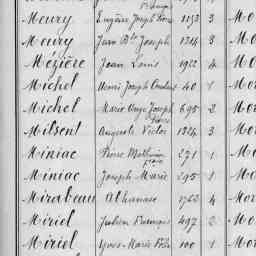 Meury Eugène Joseph 1193 3 Mo
Meury Jean Bte Joseph 1314 3 Mo
Mézière Jean Louis 1922 4 Mo
Michel Henri Joseph 40 1 Mor
Michel Marie Ange Joseph 695 2 Mor
Milsent Auguste Victor 1324 3 Mo
Miniac Pierre Mathurin 271 1 Mo
Miniac Joseph Marie 295 1 Mo
Mirabeau Athanase 1762 4 Mor
Miriel Julien François 497 2 Mor
Miriel Yves Marie 100 1 Mor